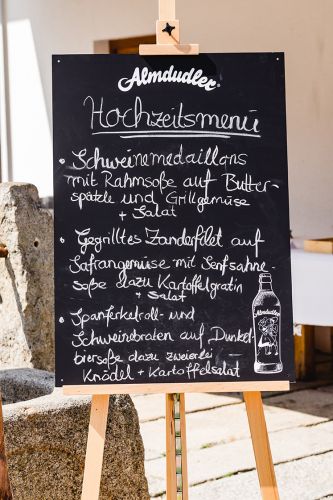 Almdudler
Hochzeitsmenü
• Schweinemedaillons
mit Rahmsoße auf Butter-
spätzle und Grillgemüse
+ Salat
• Gegrilltes Zanderfilet auf
Safrangemüse mit Senfsahne-
soße dazu Kartoffelgratin
+ Salat
• Spanferkelroll- und
Schweinebraten auf Dunkel
biersoße dazu zweierlei
Knödel + Kartoffelsalat
Almdudler